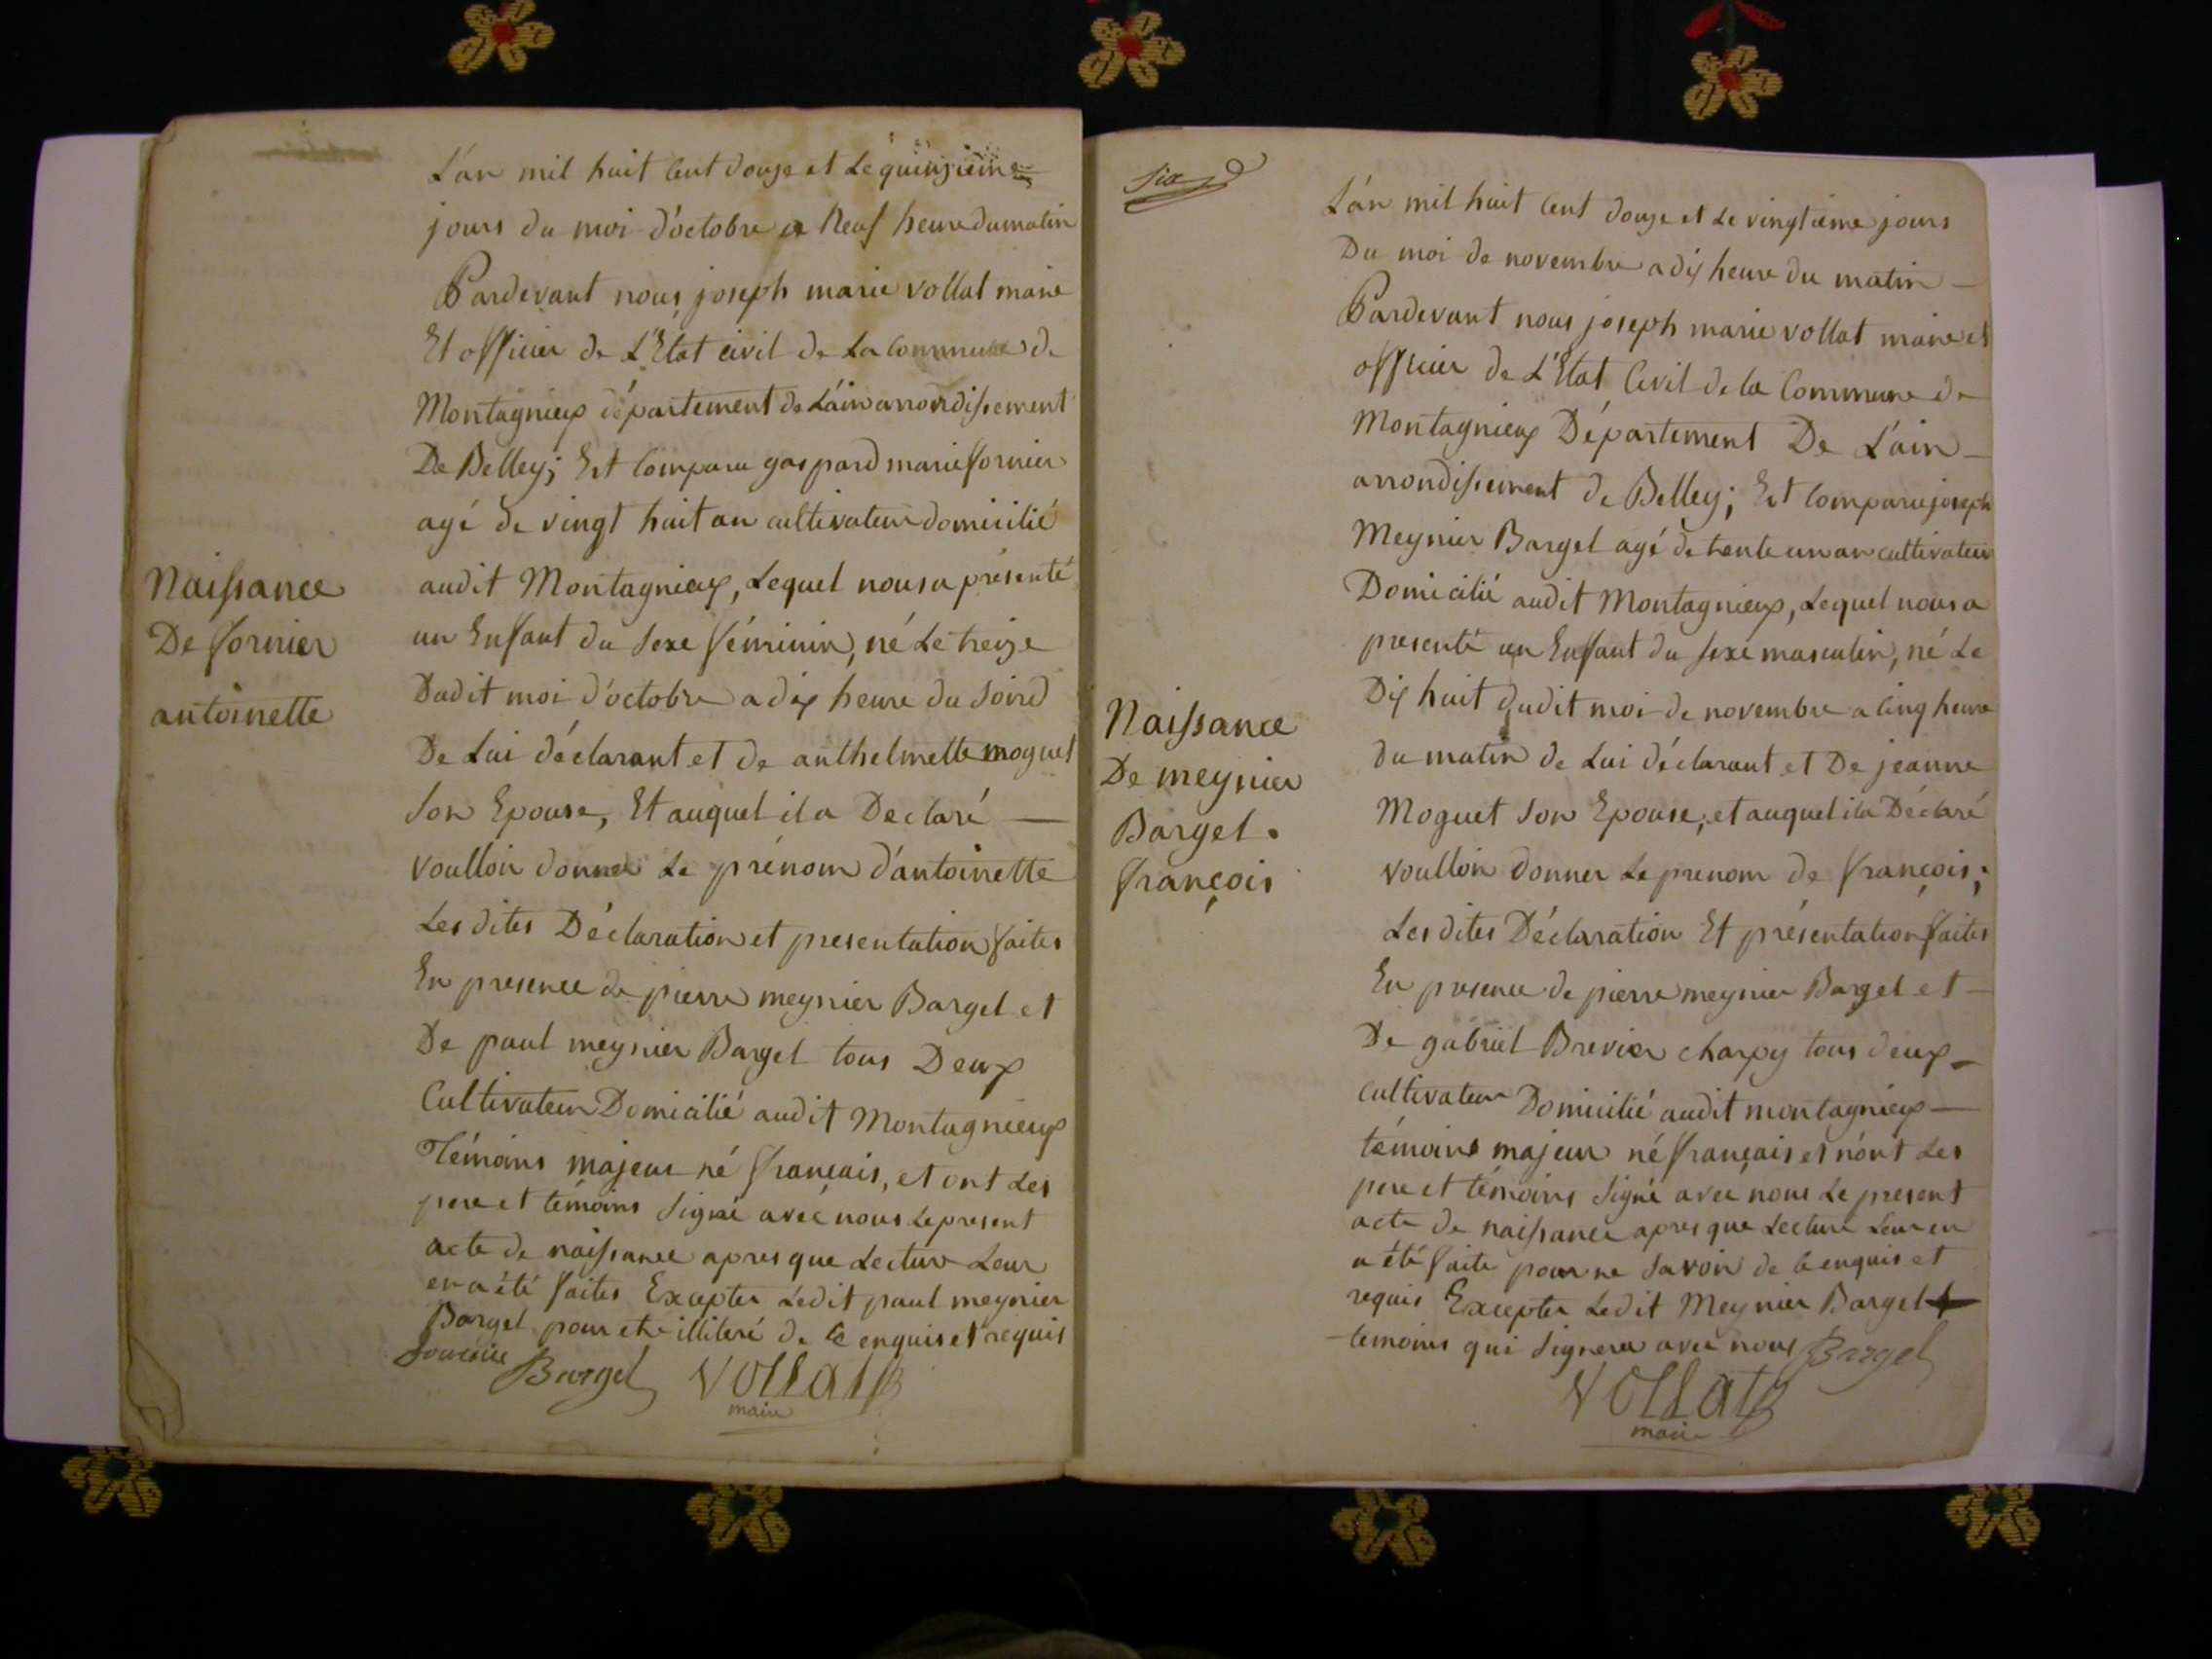 L'an mil huit cent douze et le quinzieme
jours du moi d'octobre a neuf heure du matin
Pardevant nous joseph marie vollat maire
Et officier de L'Etat civil de La commune de
Montagnieux département de L'ain arrondissement
De Belley; Est comparu gaspard marie fornier
agé de vingt huit an cultivateur domicilié
audit Montagnieux, Lequel nous a présenté
un Enfant du sexe féminin, né Le treize
Dudit moi d'octobre a dix heure du soird
De Lui déclarant et de anthelmette moguet
Son Epouse, Et auquel il a Declaré
voulloir donner Le prénom d'antoinette
Les dites Déclaration et presentation faites
En presence de pierre meynier Bargel et
De paul meynier Bargel tous Deux
Cultivateur Domicilié audit Montagnieux
Témoins majeur né français, et ont Les
pere et témoins signé avec nous Le present
acte de naissance apres que Lecture Leur
en a été faites Excepter Ledit paul meynier
Bargel pour etre illiteré de ce enquis et requis
Bargel vollat
maire
Naissance
De fornier
antoinette
Six
L'an mil huit cent douze et Le vingtieme jours
Du moi de novembre a dix heure du matin
Pardevant nous joseph marie vollat maire et
officier de L'Etat Civil de la Commune de
Montagnieux Département De L'ain
arrondissement de Belley; Est comparu joseph
Meynier Bargel agé de trente un an cultivateur
Domicilié audit Montagnieux, Lequel nous a
presenté un Enfant du sexe masculin, né Le
Dix huit dudit moi de novembre a cinq heure
du matin de Lui déclarant et De jeanne
Moguet son Epouse; et auquel il a Déclaré
voulloir donner Le prenom de françois;
Les dites Déclaration Et présentation faites
En presence de pierre meynier Bargel et
De gabriel Brevier charpy tous deux
cultivateur Domicilié audit montagnieux
témoins majeur né français et n'ont Les
pere et témoins signé avec nous Le present
acte de naissance apres que Lecture Leur en
a été faite pour ne savoir de ce enquis et
requis Excepter Ledit Meynier Bargel
temoins qui signera avec nous Bargel
vollat
maire
Naissance
De meynier
Bargel.
françois